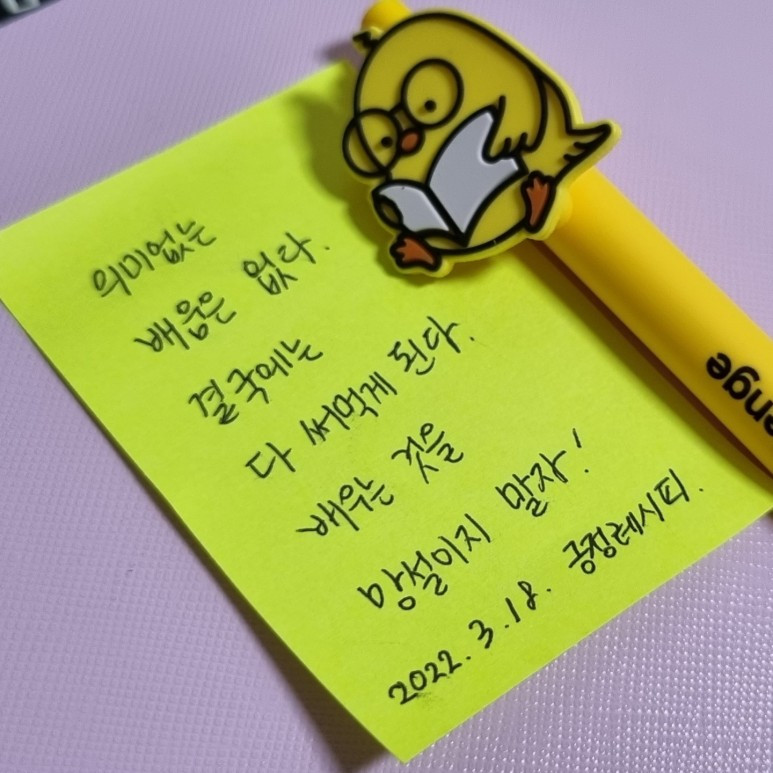 의미없는
배움은 없다.
결국에는
다 써먹게 된다.
배우는 것을
망설이지 말자!
2022. 3. 18. 긍정레시피.
ange